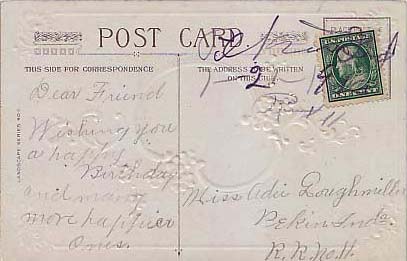 POST CARD
THIS SIDE FOR CORRESPONDENCE
THE ADDRESS TO BE WRITTEN
ON THIS SIDE
U.S. POSTAGE
ONE CENT
LANDSCAPE SERIES NO.
Dear Friend
Wishing you
a happy
Birthday
and many
more happier
Ones.
Miss Adie Loughmiller
Pekin Inda
R.R. No. 4